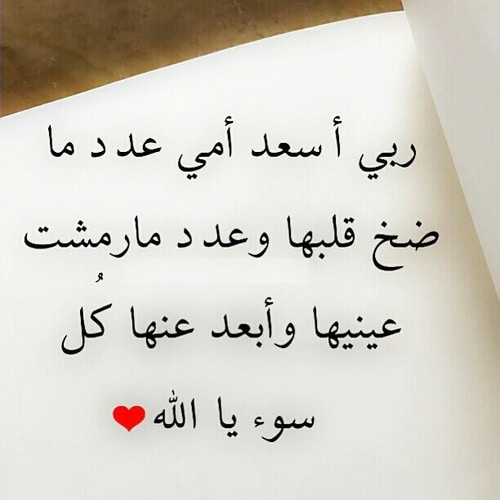 ربي أسعد أمي عدد ما
ضخ قلبها وعدد مارمشت
عينيها وأبعد عنها كُل
سوء يا الله❤